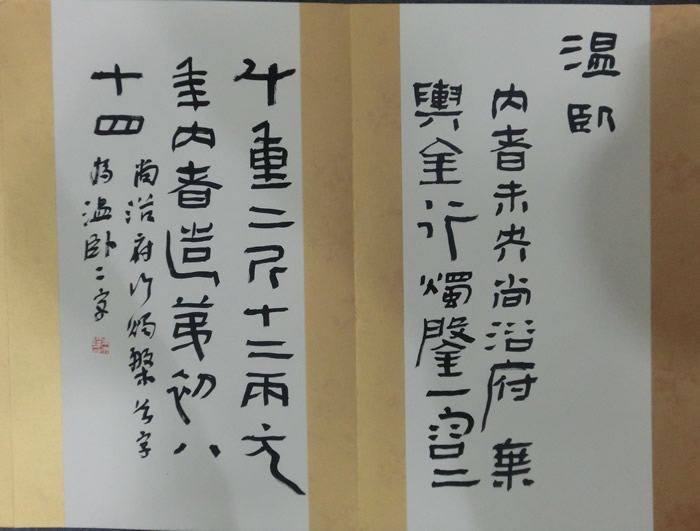 温卧
内者未央尚浴府乘
輿金行燭鎜一容二
升重二斤十二兩元
年内者造第初八
十四
尚浴府行燭槃字
温卧二字